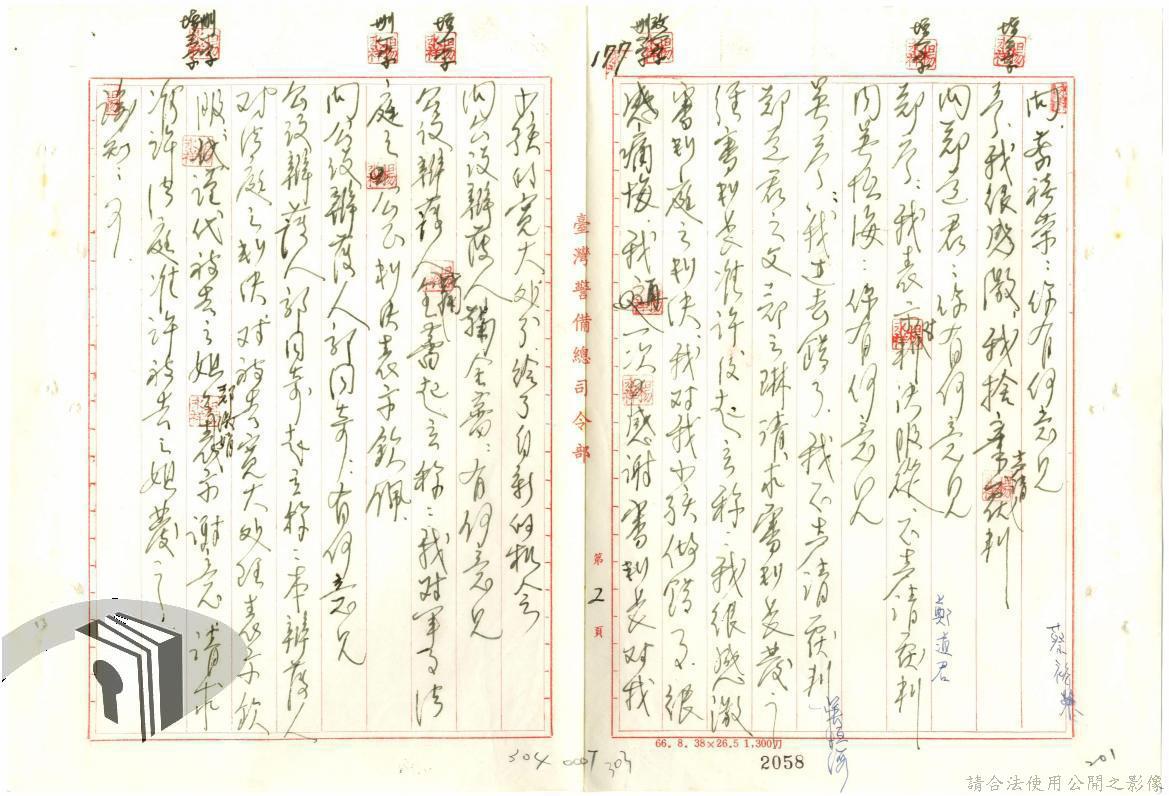 問、蔡裕榮：你有何意見
答、我很感激、我捨棄、不声請覆判
蔡裕榮
問鄭道君：你有何意見
鄭答：我表示對判決服從、不声請覆判
鄭道君
問吳恆海：你有何意見
吳答：我过去錯了、我不声請覆判
吳恆海
鄭道君之父鄭之琳請求審判長發言
經審判長准許後起立称：我很感激
審判庭之判決、我对我小孩做錯了、很
感痛悔、我再次感谢審判長对我
小孩的寬大処分、给了自新的机会
問公設辯護人 有何意見
公設辯護人 起立称：我对軍事法
庭之公正判決表示欽佩
問公設辯護人郭同奇：有何意見
公設辯護人郭同奇起立称：本辯護人
对法庭之判決对被告寬大処理表示欽
服、代 被告之姐鄭淑娟表示谢意 請求
准許法庭准許被告之姐發言
諭知：可
臺灣警備總司令部
第 2 頁
177
增 字
刪 字
66. 8. 38×26.5 1,300刀
2058
304
303
201
請合法使用公開之影像